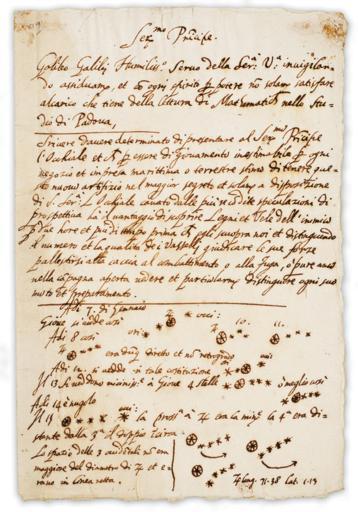 Ser.mo Principe.
Galileo Galilei Humiliss.o Servo della Ser.a V.a invigilan-
do assiduamte, et con ogni spirito p potere no solam satisfare
alcarico che tiene della lettura di Mathematich nello Stu-
dio di Padova,
Scrivere d'avere determinato di presentare al Ser.mo Principe
l'Occhiale et p essere di giovamento inestimabile p ogni
negozio et impresa marittima o terrestre stimo di tenere que-
sto nuovo artifizio nel maggior segreto et solam a disposizione
di S. Ser. L'Occhiale cavato dalle più re dite speculazioni di
prospettiva ha il vantaggio di scoprire Legni et Vele dell'inimico
p due hore et più di tempo prima ch egli scuopra noi et distinguendo
il numero et la qualità dei Vasselli giudicare le sue forze
pallestirsi alla caccia al combattimento o alla fuga, o pure anco
nella capagna aperta vedere et particolarm distinguere ogni suo
moto et preparamento.
Adi 7. di Gennaio
Giove si vedde così
Adi 8 così
10. 11.
era dunq diretto et no retrogrado
Adi 12. si vedde in tale costituzione
Il 13 si veddono vicinissi a Giove 4 stelle ò meglio così
Adi 14 è nugolo
Il 15 la pross a ♃ era la min la 4a era di-
stante dalla 3a il doppio in circa
Lo spazio delle 3 occidentali no era
maggiore del diametro di ♃ et e-
rano in linea retta.
♃ long. 71.38 lat. 1.13